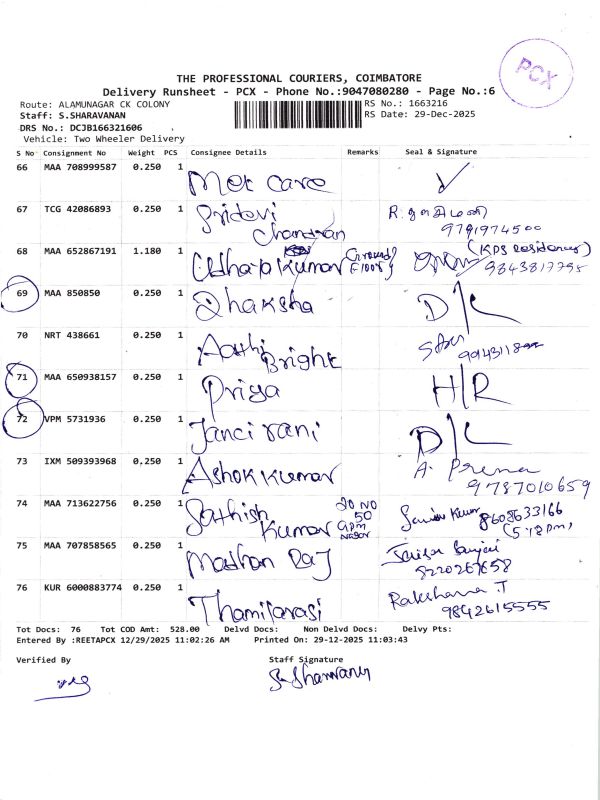 PCX
THE PROFESSIONAL COURIERS, COIMBATORE
Delivery Runsheet - PCX - Phone No.:9047080280 - Page No.:6
Route: ALAMUNAGAR CK COLONY
RS No.: 1663216
Staff: S.SHARAVANAN
RS Date: 29-Dec-2025
DRS No.: DCJB166321606
Vehicle: Two Wheeler Delivery
S No Consignment No Weight PCS Consignee Details Remarks Seal & Signature
66 MAA 708999587 0.250 1 Met care
67 TCG 42086893 0.250 1 Sridevi Chandran 9791974500
68 MAA 652867191 1.180 1 Kumar Ground Floor (KPS Residency) 9843817795
69 MAA 850850 0.250 1 Dhaksha D/L
70 NRT 438661 0.250 1 Aathi Bright
71 MAA 650938157 0.250 1 Priya H/R
72 VPM 5731936 0.250 1 Janci rani D/L
73 IXM 509393968 0.250 1 Ashok Kumar A. Prema 9787010659
74 MAA 713622756 0.250 1 Sathish Kumar 50 8608633166
75 MAA 707858565 0.250 1 Madhan Raj 8220267658
76 KUR 6000883774 0.250 1 Thamilarasi Rakshana .T 9842615555
Tot Docs: 76 Tot COD Amt: 528.00 Delvd Docs: Non Delvd Docs: Delvy Pts:
Entered By :REETAPCX 12/29/2025 11:02:26 AM Printed On: 29-12-2025 11:03:43
Verified By Staff Signature